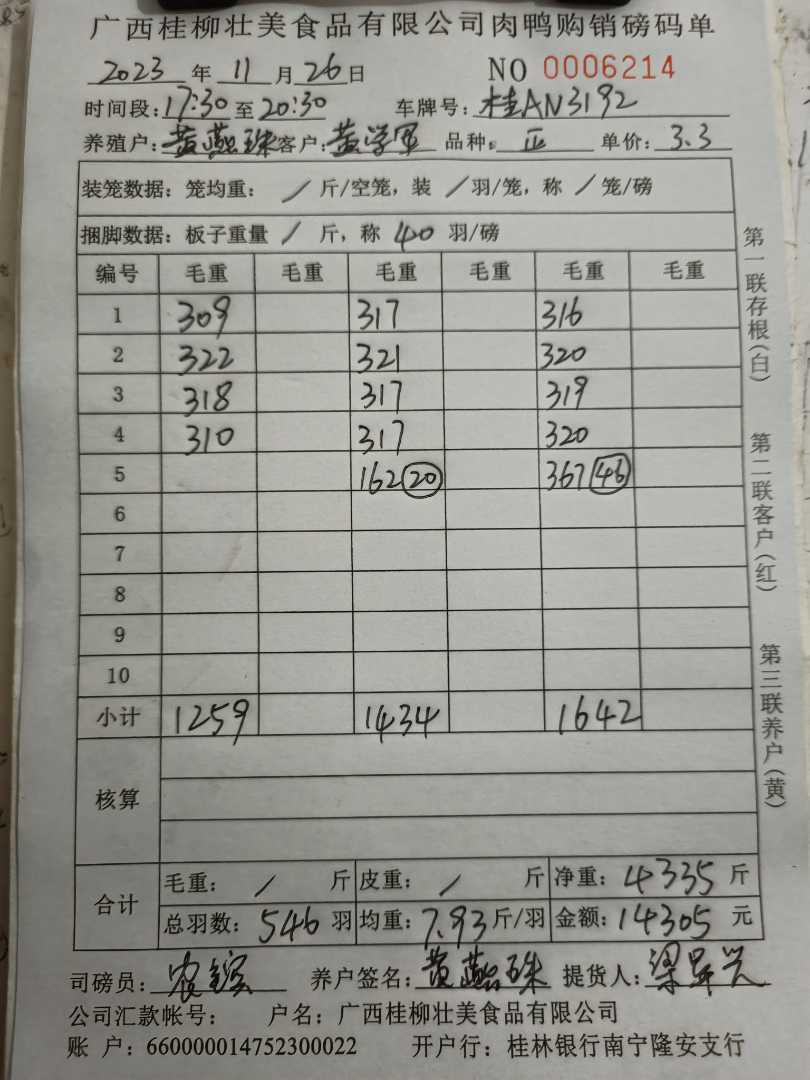 广西桂柳壮美食品有限公司肉鸭购销磅码单
2023 年 11 月 26 日 NO 0006214
时间段: 17:30 至 20:30 车牌号: 桂AN3192
养殖户: 黄燕珠 客户: 黄学军 品种: 正 单价: 3.3
装笼数据: 笼均重: / 斤/空笼, 装 / 羽/笼, 称 / 笼/磅
捆脚数据: 板子重量 / 斤, 称 40 羽/磅
编号 毛重 毛重 毛重 毛重 毛重 毛重
1 309 317 316
2 322 321 320
3 318 317 319
4 310 317 320
5 162 20 367 46
6
7
8
9
10
小计 1259 1434 1642
核算
合计 毛重: / 斤 皮重: / 斤 净重: 4335 斤
总羽数: 546 羽 均重: 7.93 斤/羽 金额: 14305 元
司磅员: 农 养户签名: 黄燕珠 提货人: 梁昇兴
公司汇款帐号: 户名: 广西桂柳壮美食品有限公司
账 户: 660000014752300022 开户行: 桂林银行南宁隆安支行
第一联存根(白)
第二联客户(红)
第三联养户(黄)